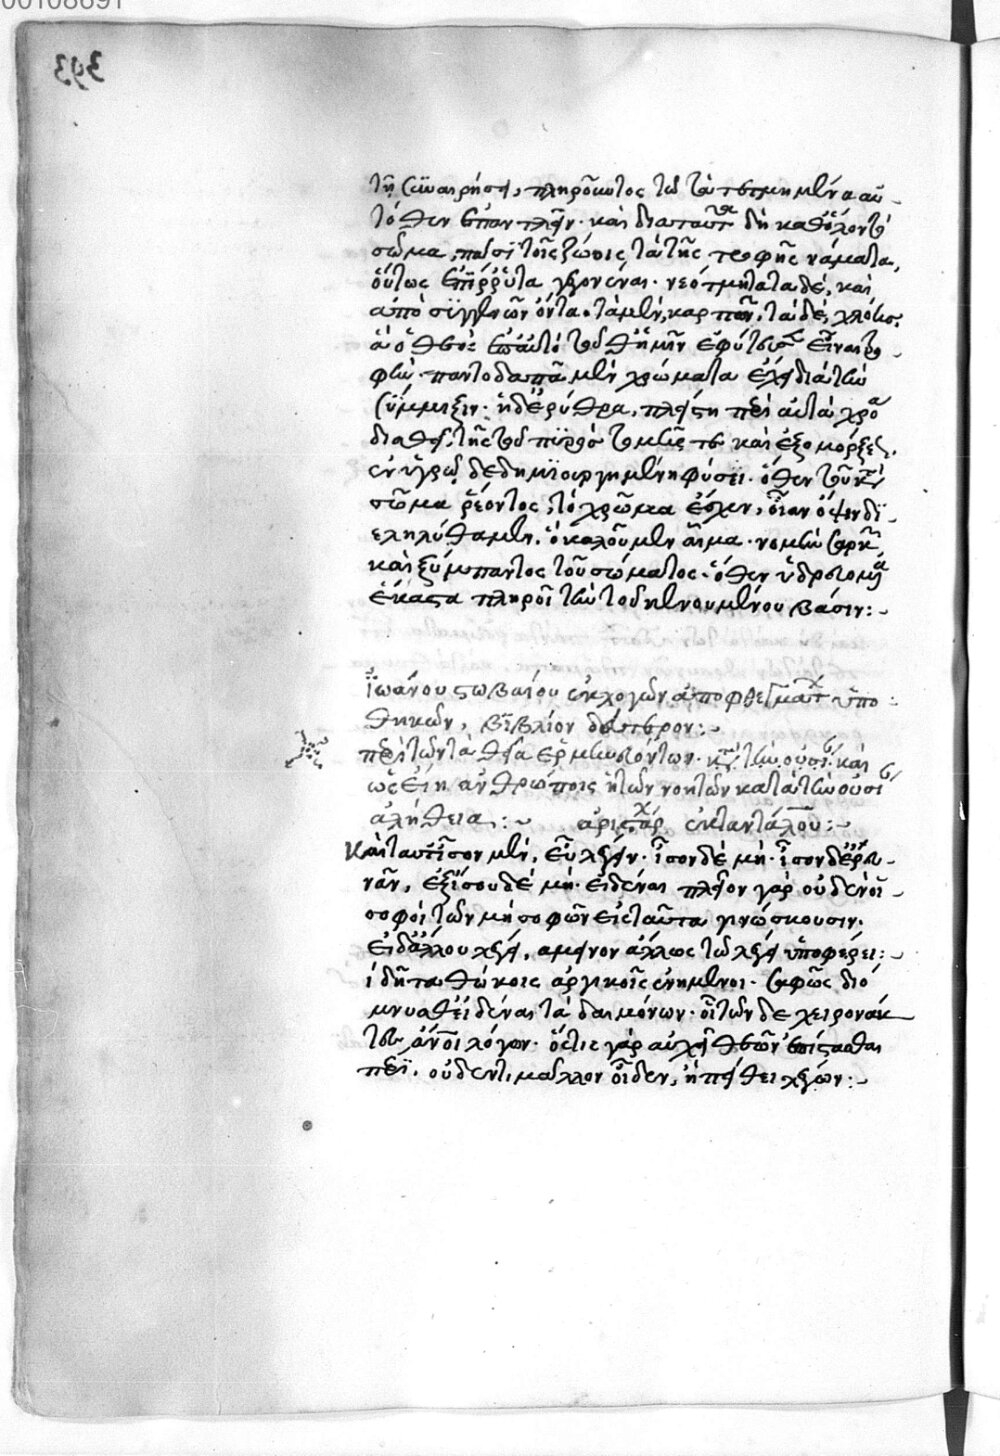 00108691
393
τῇ συναιρήσει, πληροῦντος τὰ τετμημένα αὐ-
τόθεν ἐπανιέναι. καὶ διὰ ταῦτα δὴ καθόλον τὸ
σῶμα, πᾶσι τοῖς ζώοις τὰ τῆς τροφῆς νάματα,
οὕτως ἐπίρρυτα γέγονέναι. νεότμητα τὰ δὲ, καὶ
ἀπὸ συγγενῶν ὄντα. τὰ μὲν, καρπῶν, τὰ δὲ, χλόης,
ἃ ὁ θεὸς ἐπ' αὐτὸ τοῦθ' ἡμῖν ἐφύτευσεν εἶναι τρο-
φὴν. παντοδαπὰ μὲν χρώματα ἔχει διὰ τὴν
σύμμιξιν. ἡ δ' ἐρυθρὰ, πλείστη περὶ αὐτὰ χρόα
διαθεῖ, τῆς τοῦ πυρὸς τομῆς τε καὶ ἐξομόρξεως,
ἐν ὑγρῷ δεδημιουργημένη φύσει. ὅθεν τοῦ κατὰ
σῶμα ῥέοντος, τὸ χρῶμα ἔσχεν, οἵαν ὄψιν δι-
εληλύθαμεν. ὃ καλοῦμεν αἷμα. νομὴν σαρκῶν
καὶ ξύμπαντος τοῦ σώματος. ὅθεν ὑδρευόμενα
ἕκαστα πληροῖ τὴν τοῦ κενουμένου βάσιν:-
ἰωάννου στοβαίου ἐκλογῶν ἀποφθεγμάτων ὑπο-
θηκῶν, βιβλίον δεύτερον:-
περὶ τῶν τὰ θεῖα ἑρμηνευόντων. καὶ
ὡς εἴη ἀνθρώποις ἡ τῶν νοητῶν κατὰ τὴν οὐσίαν
ἀλήθεια:- ἀριστάρχου ἐκ ταντάλου:-
καὶ ταῦτ' ἴσον μὲν, εὖ λέγειν. ἴσον δὲ μή. ἴσον δ' ἐρευ-
νᾶν, ἐξ ἴσου δὲ μὴ εἰδέναι. πλεῖον γὰρ οὐδὲν οἱ
σοφοὶ τῶν μὴ σοφῶν εἰς ταῦτα γινώσκουσιν.
εἰ δ' ἄλλου λέγει, ἄμεινον ἄλλος τῷ λέγειν ὑπερφέρει:
δῆτα θώκοις ἀργικοῖς ἐνημένοι. σαφῶς διό
μνυσθ' εἰδέναι τὰ δαιμόνων. οἱ τῶνδε χειρώνακ-
τες ἄνθρωποι λόγων. ὅστις γὰρ αὐχεῖ θεῶν ἐπίστασθαι
πέρι, οὐδέν τι μᾶλλον οἶδεν, ἢ πείθει λέγων:-